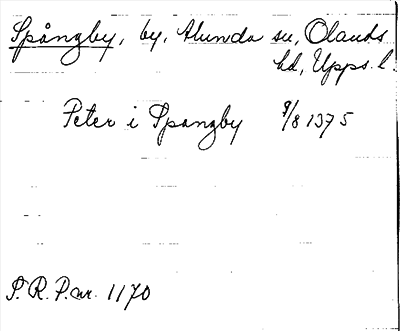 Spångby, by, Alunda sn, Olands
hd, Upps. l.
Peter i Spangby 9/8 1375
S. R. P. nr. 1170